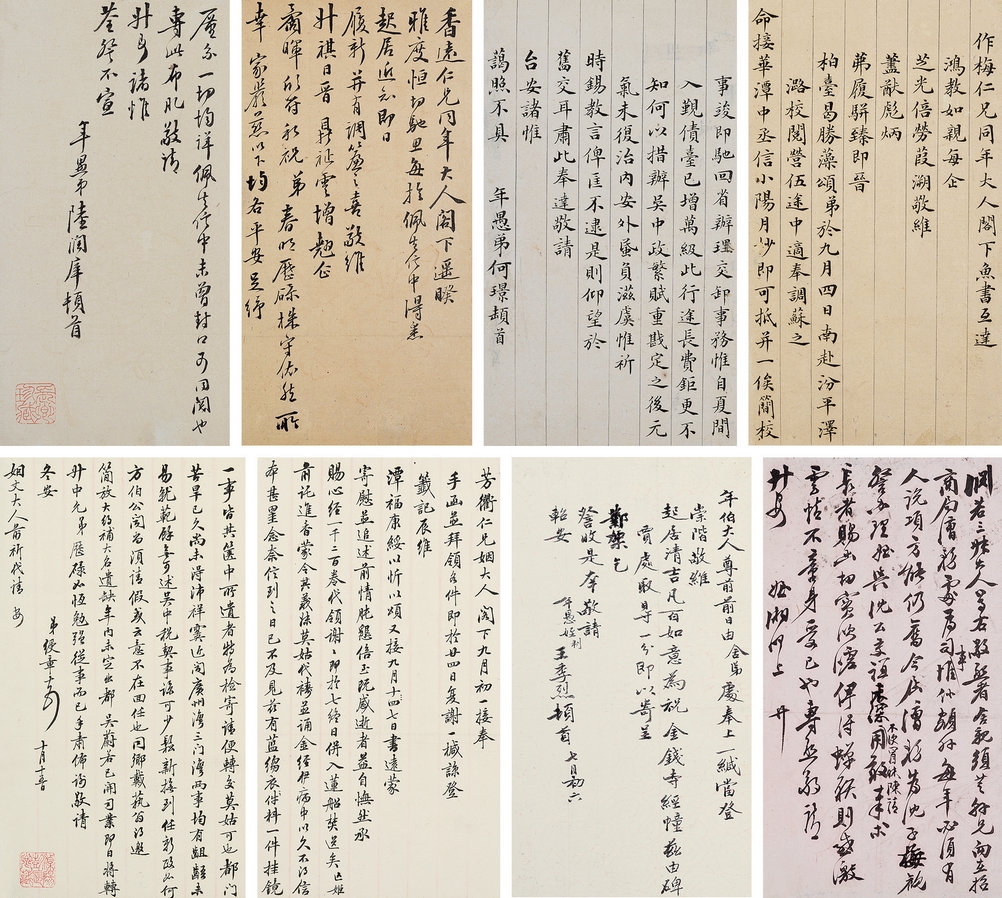 作梅仁兄同年大人閣下魚書互達
鴻教如親每企
芝光倍勞葭溯敬維
藎猷彪炳
茀履駢臻即晉
柏臺曷勝藻頌弟於九月四日南赴汾平澤
潞校閱營伍途中適奉調蘇之
命接華潭中丞信小陽月杪即可抵并一俟簡校
事竣即馳回省辦理交卸事務惟自夏間
入覲債臺已增萬級此行途長費鉅更不
知何以措辦吳中政繁賦重戡定之後元
氣未復治內安外蚤負滋虞惟祈
時錫教言俾匡不逮是則仰望於
舊交耳肅此奉達敬請
台安諸惟
藹照不具
年愚弟何璟頓首
香遠仁兄同年大人閣下遥睽
雅度恒切馳思每於佩生信中得悉
起居近念即日
履新并有調簾之喜敬維
升祺日晉鼎祉雲增翹企
霽暉以符私祝弟春明歷碌株守依然所
幸家嚴慈以下均各平安足紓
廑系一切均詳佩生信中未曾封口可同閱也
專此布肊敬請
升安諸惟
荃詧不宣
年愚弟陸潤庠頓首
商局漕務處為司
人說項方能仍舊今屆漕務為沈子梅觀
長者賜函切實
雲情不棄身受已也專此敬請
升安
年伯大人尊前前日由舍弟處奉上一緘當登
崇階敬維
起居清吉凡百如意為祝金錢寺經幢茲由碑
賈處取得一分即以寄呈
鄴架乞
詧收是荷敬請
軺安
年愚姪制王季烈頓首七月初六
芳衢仁兄姻大人閣下九月初一接奉
手函並拜領各件即於廿四日复謝一椷諒登
籤記辰維
潭福康綏以忻以頌又接九月十四七日書遠蒙
寄慰並追述前情肫懇倍至既感逝者益自悔並承
賜心經一千二百卷代領謝謝即於七經日併入蓮船焚送矣亡姬
前託進香蒙令其義法莫姑代禱並誦金經伊病中以久不得信
奉甚罣念奈信到之日已不及見茲有藍縐衣件料一件挂鏡
一事皆共篋中所遺者特為檢寄請便轉交莫姑可也都門
苦旱已久尚未得沛祥霙近聞廣州灣三門灣兩事均有齟齬未
易就範餘無可述吳中税契事諒可少鬆新接到任新政如何
方伯公聞尚須請假或云意不在回任也同鄉戴藝翁得邀
簡放大約補大名遺缺年內未定出都吳蔚若已開司業即日將轉
升中允弟歷碌如恒勉強從事而已手肅佈謝敬請
冬安
弟緩章
十月
姻丈大人前祈代請安